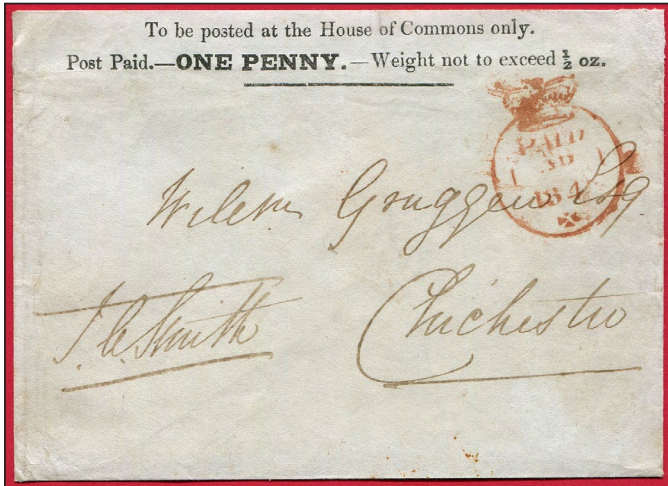 To be posted at the House of Commons only.
Post Paid.—ONE PENNY.—Weight not to exceed ½ oz.
PAID
184
Gruggen Esq
J. A. Smith
Chichester